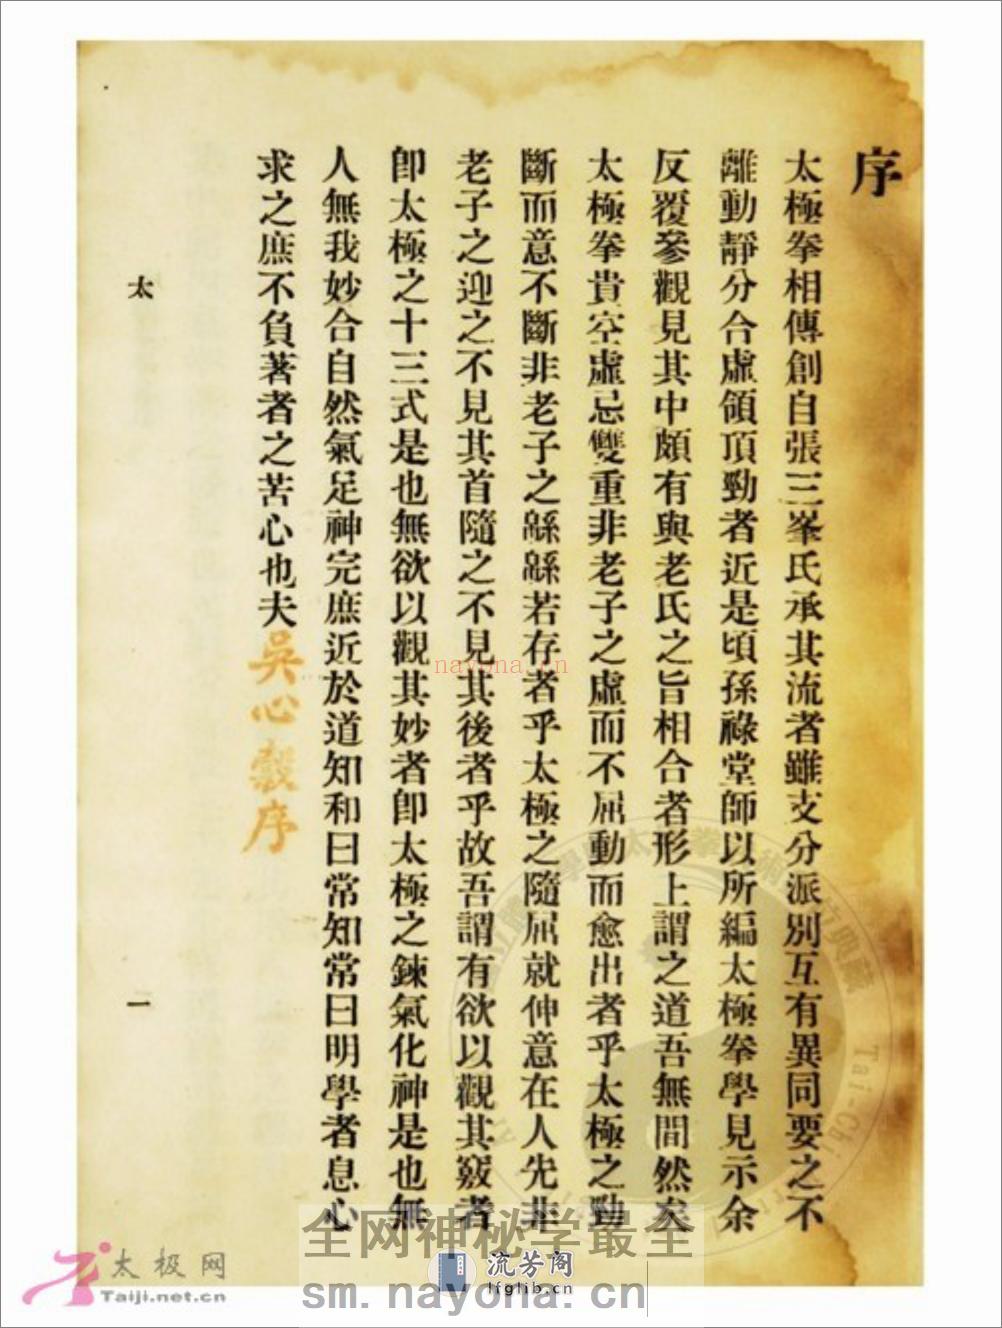 序
太極拳相傳創自張三峯氏承其流者雖支分派別互有異同要之不
離動靜分合虛領頂勁者近是頃孫祿堂師以所編太極拳學見示余
反覆參觀見其中頗有與老氏之旨相合者形上謂之道吾無間然矣
太極拳貴空虛忌雙重非老子之虛而不屈動而愈出者乎太極之勁
斷而意不斷非老子之緜緜若存者乎太極之隨屈就伸意在人先非
老子之迎之不見其首隨之不見其後者乎故吾謂有欲以觀其竅者
卽太極之十三式是也無欲以觀其妙者卽太極之鍊氣化神是也無
人無我妙合自然氣足神完庶近於道知和曰常知常曰明學者息心
求之庶不負著者之苦心也夫
吳心穀序
太
一
nayona.cn
Tai-Chi
全网神秘学最全
sm.nayona.cn
流芳阁
lfglib.cn
太极网
Taiji.net.cn